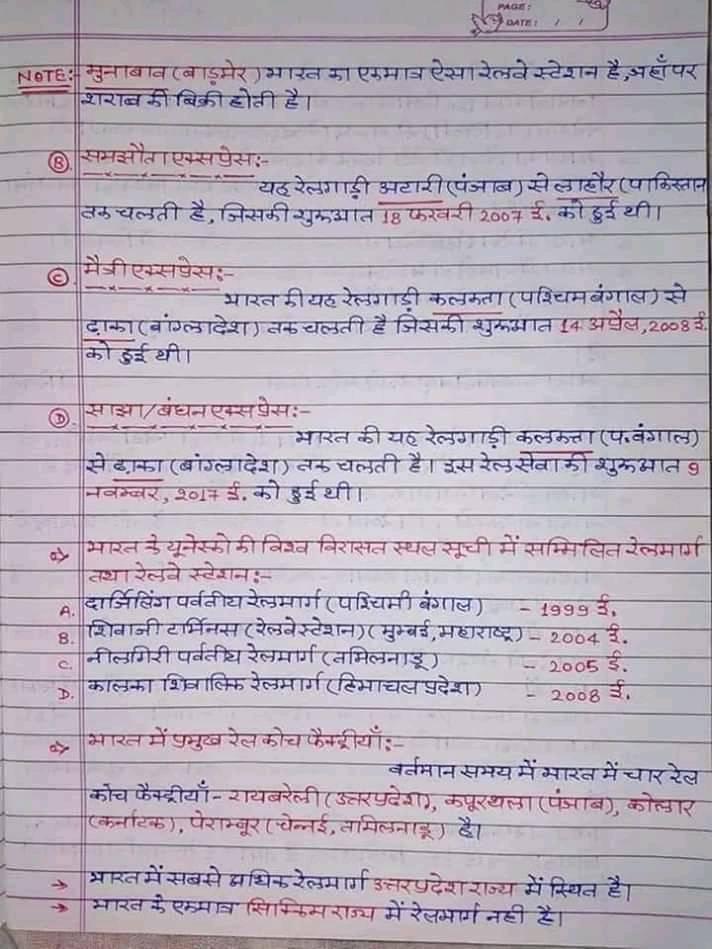 PAGE:
DATE: / /
NOTE:- मुनाबाव (बाड़मेर) भारत का एकमात्र ऐसा रेलवे स्टेशन है, जहाँ पर
शराब की बिक्री होती है।
B. समझौता एक्सप्रेस:-
यह रेलगाड़ी अटारी (पंजाब) से लाहौर (पाकिस्तान
तक चलती है, जिसकी शुरूआत 18 फरवरी 2007 ई. को हुई थी।
C. मैत्री एक्सप्रेस:-
भारत की यह रेलगाड़ी कलकत्ता (पश्चिम बंगाल) से
ढ़ाका (बांग्लादेश) तक चलती है जिसकी शुरूआत 14 अप्रैल, 2008 ई.
को हुई थी।
D. साझा/बंधन एक्सप्रेस:-
भारत की यह रेलगाड़ी कलकत्ता (प. बंगाल)
से ढाका (बांग्लादेश) तक चलती है। इस रेल सेवा की शुरूआत 9
नवम्बर, 2017 ई. को हुई थी।
भारत के यूनेस्को की विश्व विरासत स्थल सूची में सम्मिलित रेलमार्ग
तथा रेलवे स्टेशन:-
A. दार्जिलिंग पर्वतीय रेलमार्ग (पश्चिमी बंगाल) - 1999 ई.
B. शिवाजी टर्मिनस (रेलवे स्टेशन) (मुम्बई, महाराष्ट्र) - 2004 ई.
C. नीलगिरी पर्वतीय रेलमार्ग (तमिलनाडू) - 2005 ई.
D. कालका शिवालिक रेलमार्ग (हिमाचल प्रदेश) - 2008 ई.
भारत में प्रमुख रेल कोच फैक्ट्रीयाँ:-
वर्तमान समय में भारत में चार रेल
कोच फैक्ट्रीयाँ- रायबरेली (उत्तरप्रदेश), कपूरथला (पंजाब), कोलार
(कर्नाटक), पेराम्बूर (चेन्नई, तामिलनाडू) है।
→ भारत में सबसे अधिक रेलमार्ग उत्तरप्रदेश राज्य में स्थित है।
→ भारत के एकमात्र सिक्किम राज्य में रेलमार्ग नही है।